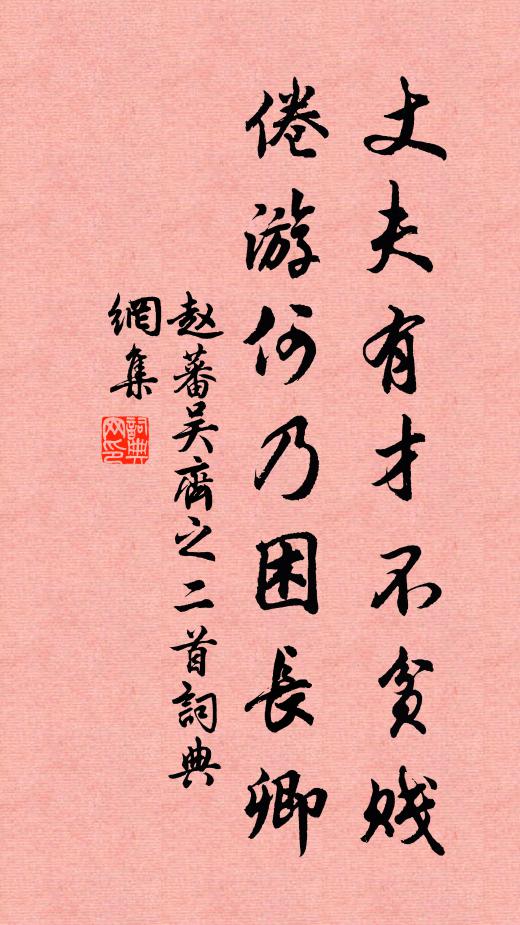 丈夫有才不贫贱
倦游何乃困長卿
赵蕃吴齊之二首詞典
網集
詞典网印